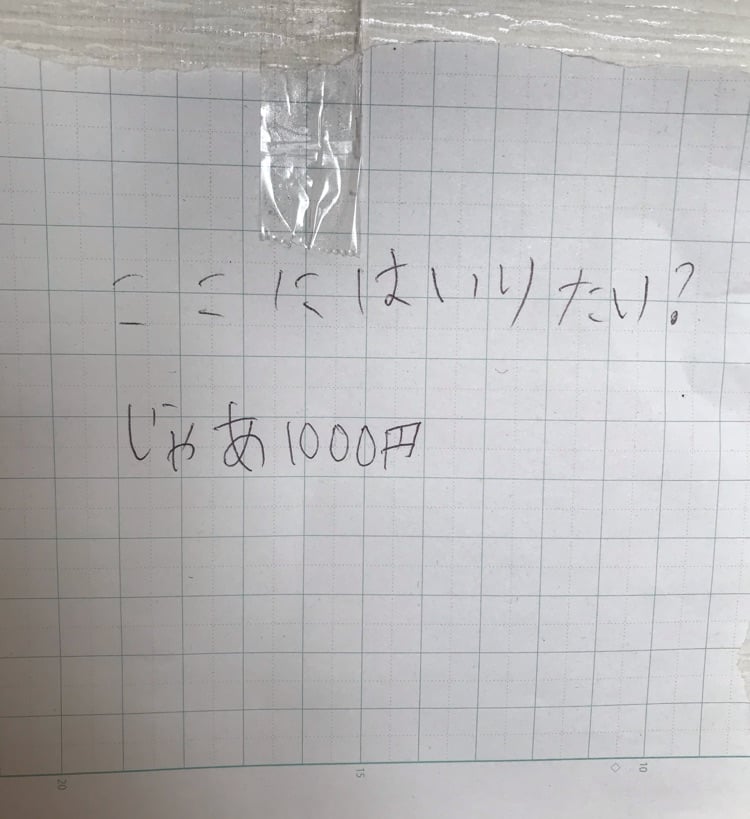 ここにはいりたい?
じゃあ1000円
20
15
10